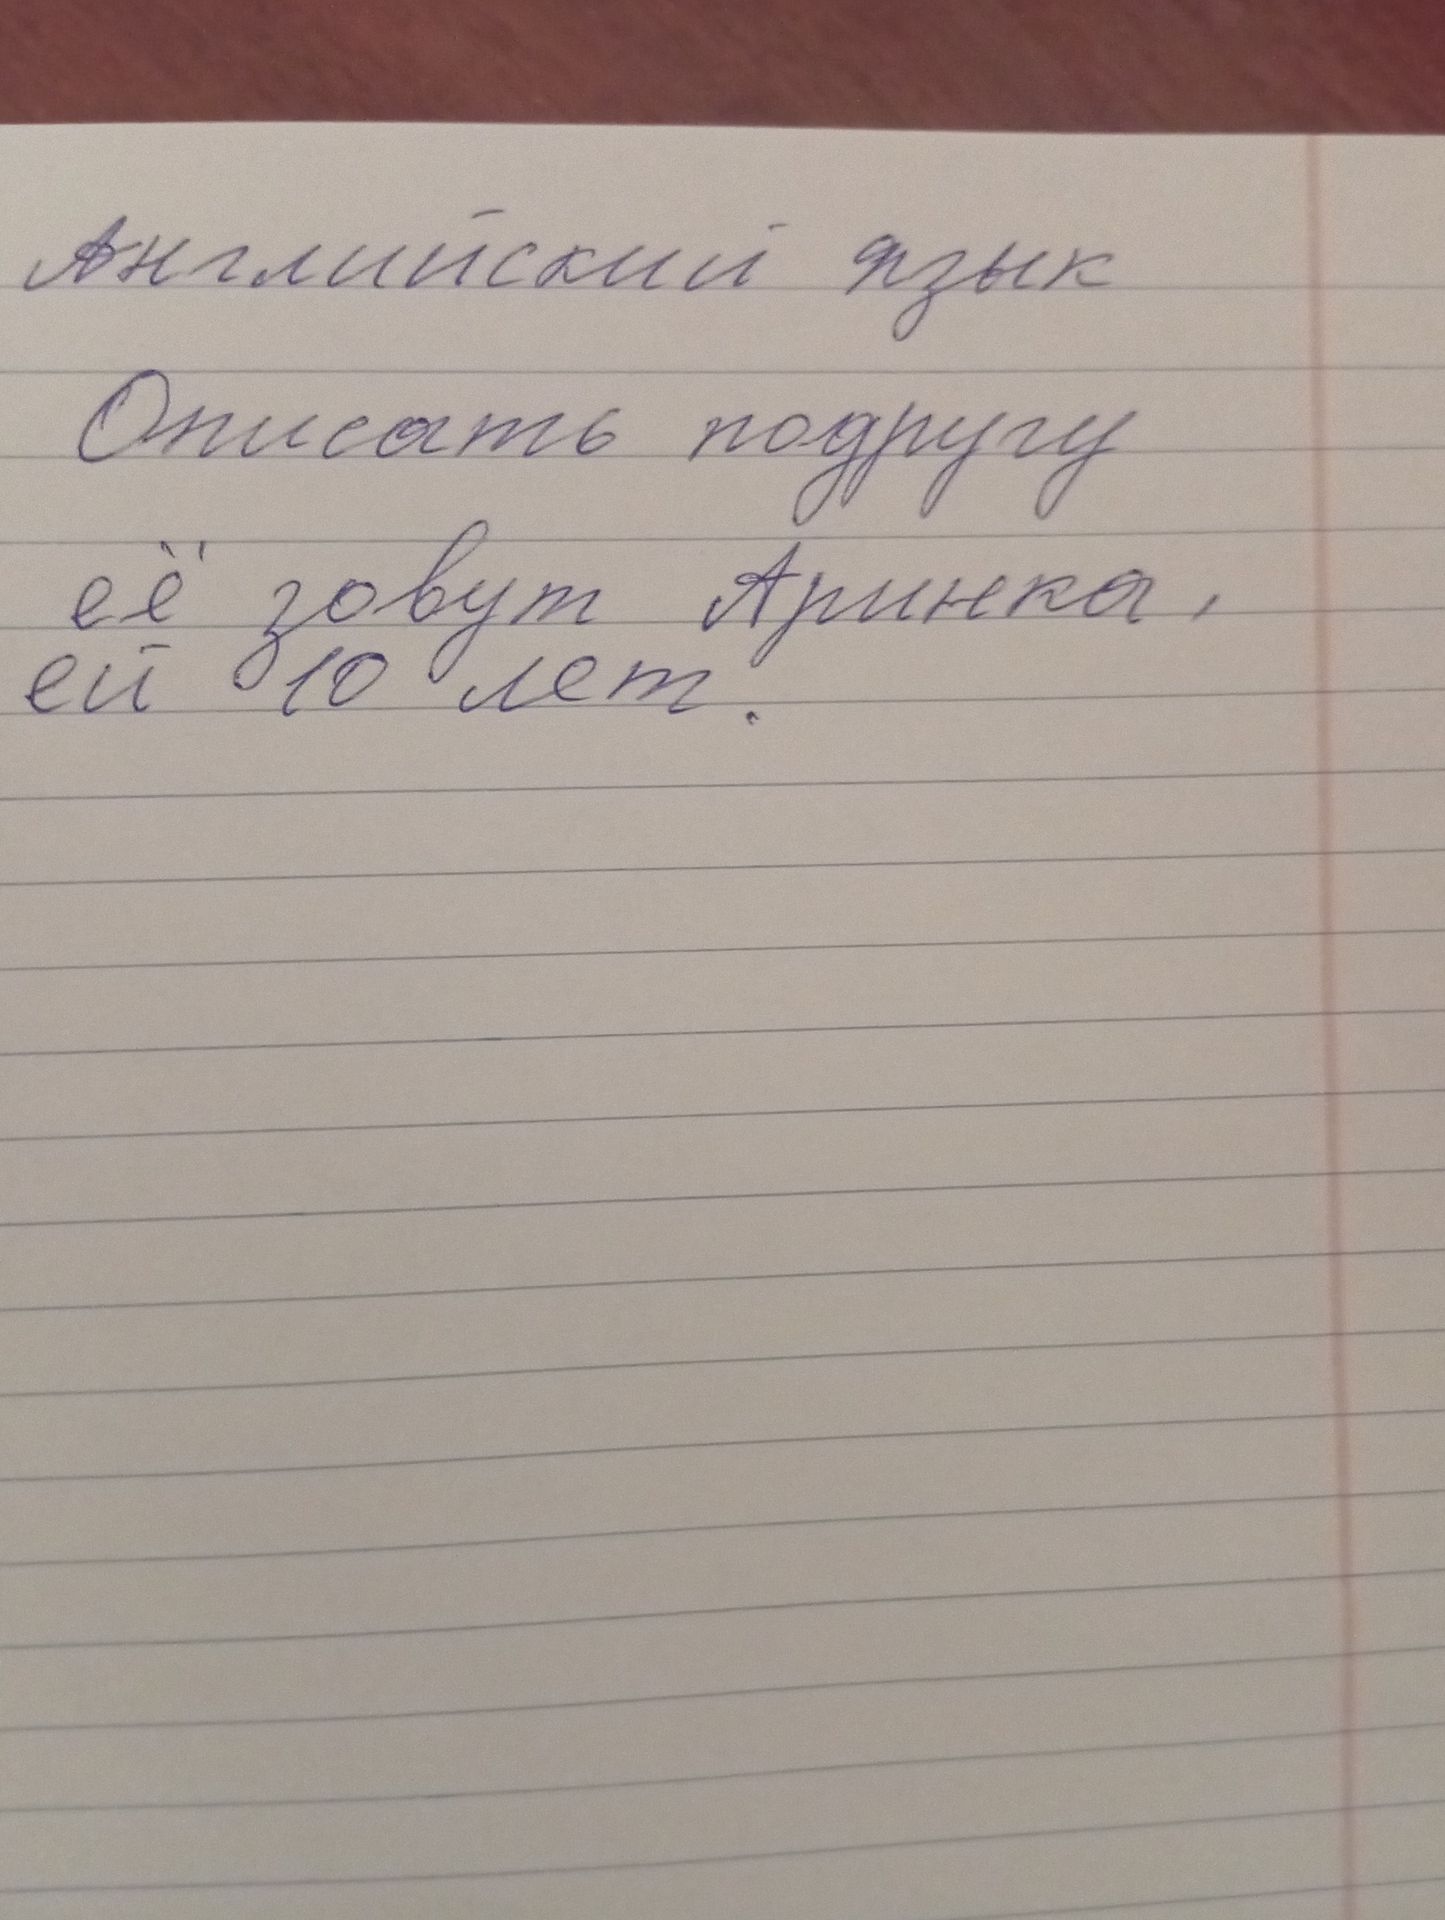 Английский язык
Описать подругу
её зовут Аринка,
ей 10 лет.